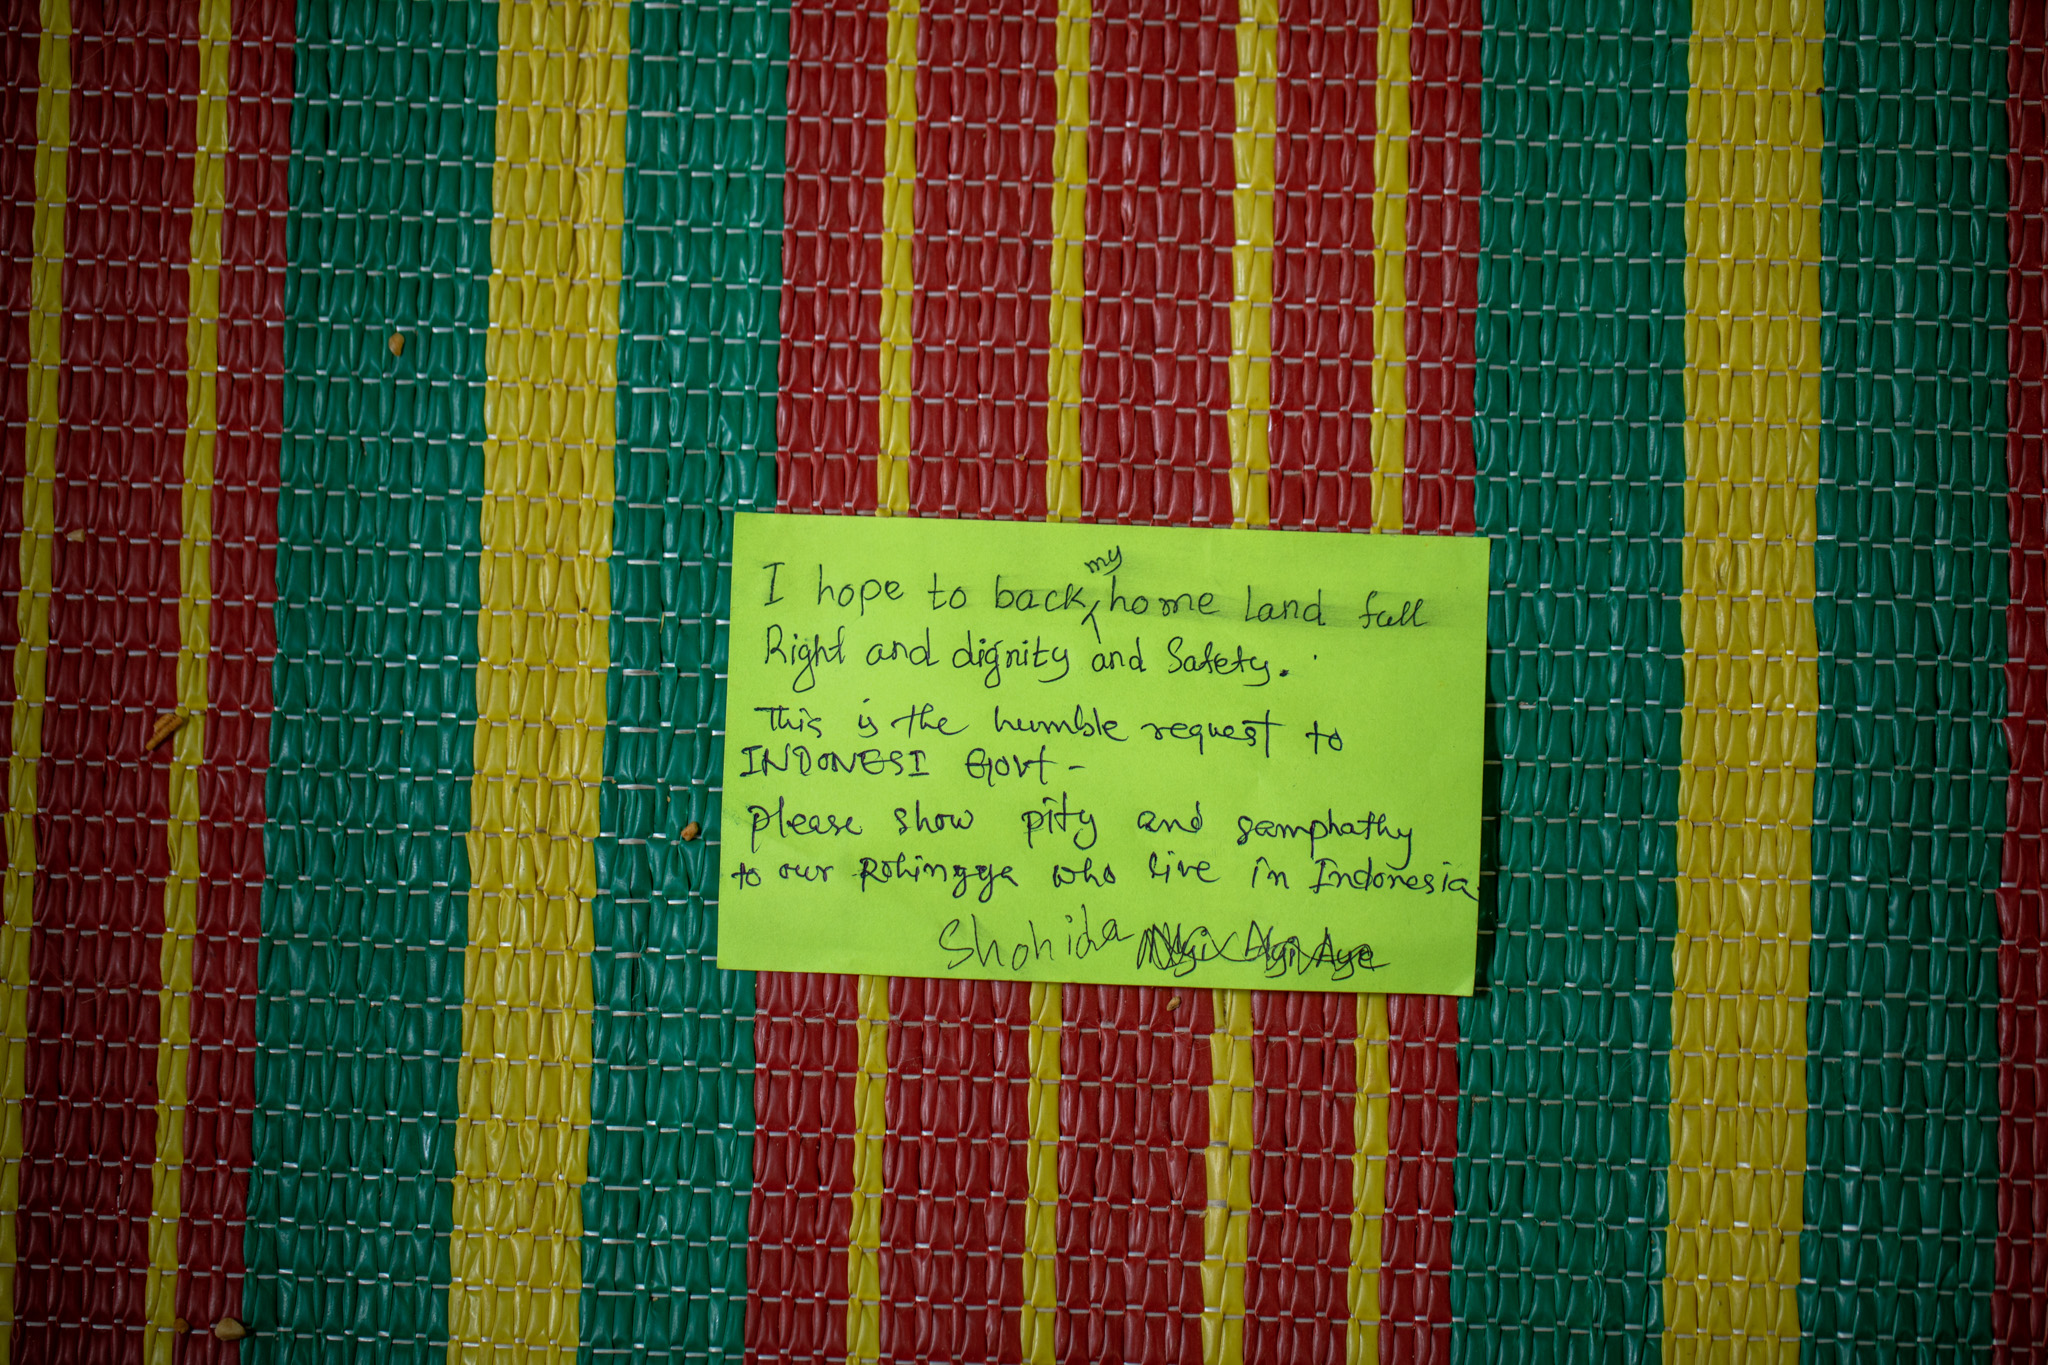 I hope to back my home land full
Right and dignity and Safety.
This is the humble request to
INDONESI Govt -
please show pity and samphathy
to our Rohingya who live in Indonesia.
Shohida